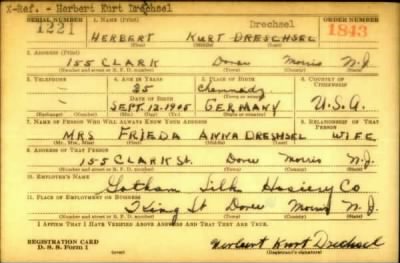 X-Ref. - Herbert Kurt Drechsel
SERIAL NUMBER 1. NAME (Print) Drechsel ORDER NUMBER
1221 HERBERT KURT DRESCHSEL 1843
(First) (Middle) (Last)
2. ADDRESS (Print)
155 CLARK Dover Morris N.J.
(Number and street or R. F. D. number) (Town) (County) (State)
3. TELEPHONE 4. AGE IN YEARS 5. PLACE OF BIRTH 6. COUNTRY OF CITIZENSHIP
- 35
DATE OF BIRTH (Town or county)
- SEPT. 12. 1905 GERMANY U.S.A.
(Exchange) (Number) (Mo.) (Day) (Yr.) (State or country)
7. NAME OF PERSON WHO WILL ALWAYS KNOW YOUR ADDRESS 8. RELATIONSHIP OF THAT PERSON
MRS FRIEDA ANNA DRESHSEL WIFE
(Mr., Mrs., Miss) (First) (Middle) (Last)
9. ADDRESS OF THAT PERSON
155 CLARK St. Dover Morris N.J.
(Number and street or R. F. D. number) (Town) (County) (State)
10. EMPLOYER'S NAME
Gotham Silk Hosiery Co
11. PLACE OF EMPLOYMENT OR BUSINESS
King St Dover Morris N.J.
(Number and street or R. F. D. number) (Town) (County) (State)
I AFFIRM THAT I HAVE VERIFIED ABOVE ANSWERS AND THAT THEY ARE TRUE.
REGISTRATION CARD
D. S. S. Form 1 Herbert Kurt Drechsel
(Registrant's signature)